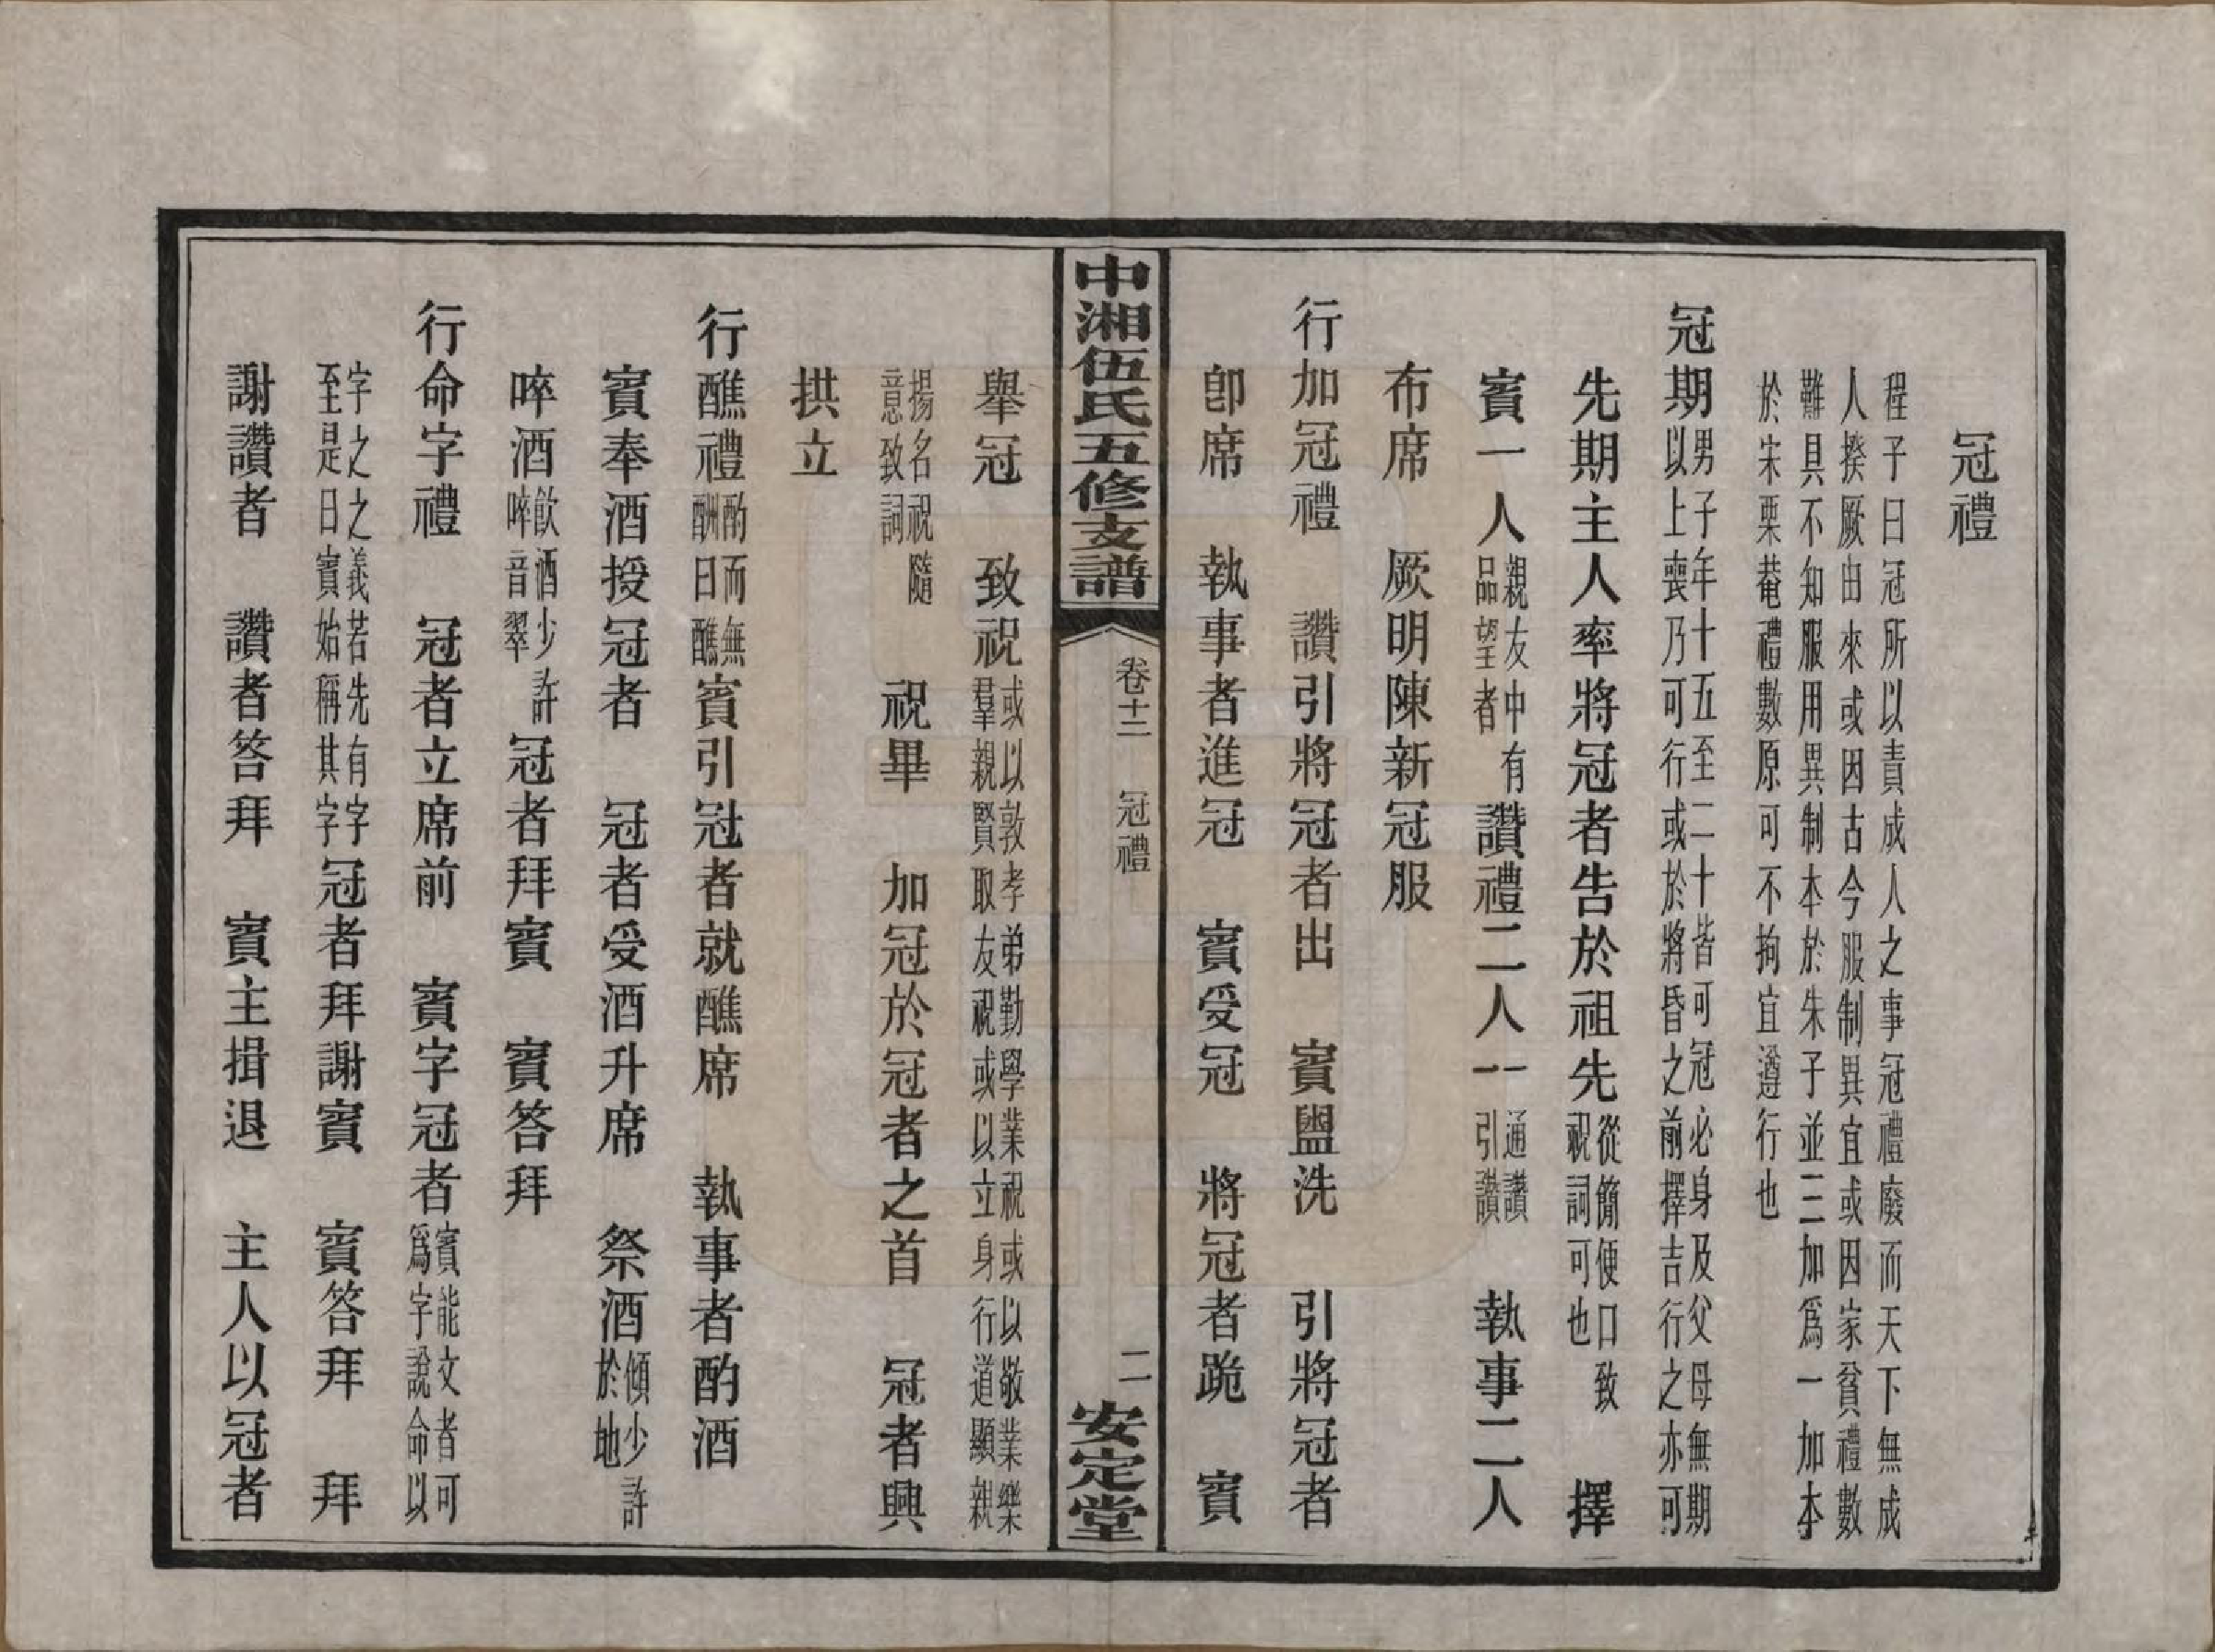 冠禮
程子曰冠所以責成人之事冠禮廢而天下無成
人揆厥由來或因古今服制異宜或因家貧禮數
難具不知服用異制本於朱子並三加爲一加本
於宋栗菴禮數原可不拘宜遵行也
冠期男子年十五至二十皆可冠必身及父母無期
以上喪乃可行或於將昏之前擇吉行之亦可
先期主人率將冠者告於祖先從簡便口致祝詞可也　擇
賓一人親友中有品望者　讚禮二人一通讚一引讚　執事二人
布席　厥明陳新冠服
行加冠禮　讚引將冠者出　賓盥洗　引將冠者
卽席　執事者進冠　賓受冠　將冠者跪　賓
中湘伍氏五修支譜
卷十二　冠禮
二
安定堂
舉冠　致祝或以敦孝弟勤學業祝或以敬業樂羣親賢取友祝或以立身行道顯親
揚名祝隨意致詞　祝畢　加冠於冠者之首　冠者興
拱立
行醮禮酌而無酬曰醮　賓引冠者就醮席　執事者酌酒
賓奉酒授冠者　冠者受酒升席　祭酒傾少許於地
啐酒飮酒少許啐音翠　冠者拜賓　賓答拜
行命字禮　冠者立席前　賓字冠者賓能文者可爲字說命以
字之之義若先有字字至是日賓始稱其字　冠者拜謝賓　賓答拜　拜
謝讚者　讚者答拜　賓主揖退　主人以冠者